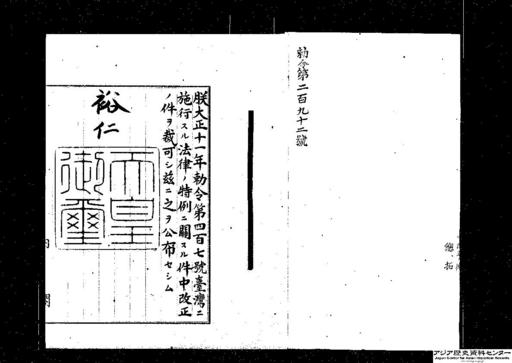 勅令第二百九十二號
朕大正十一年勅令第四百七號臺灣ニ
施行スル法律ノ特例ニ關スル件中改正
ノ件ヲ裁可シ茲ニ之ヲ公布セシム
裕仁
天皇
御璽
内閣
德、拓
アジア歴史資料センター
Japan Center for Asian Historical Records